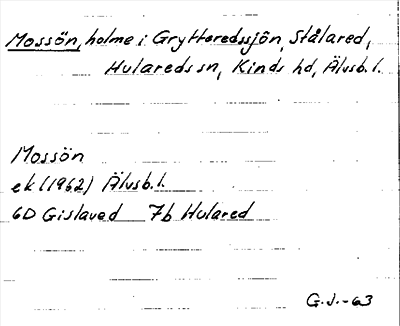 Mossön, holme i Grytteredssjön, Stålared,
Hulareds sn, Kinds hd, Älvsb. l.
Mossön
ek (1962) Älvsb. l.
6D Gislaved 7b Hulared
G.J.-63